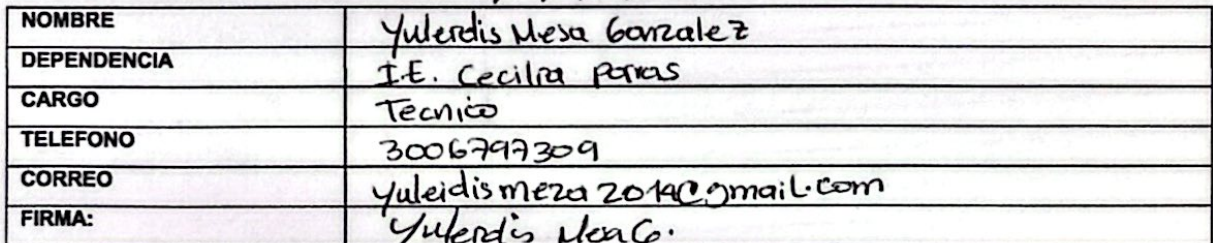 NOMBRE Yuleidis Mesa Gonzalez
DEPENDENCIA I.E. Cecilia Porras
CARGO Tecnico
TELEFONO 3006797309
CORREO yuleidismeza2014@gmail.com
FIRMA: Yuleidis Mesa G.